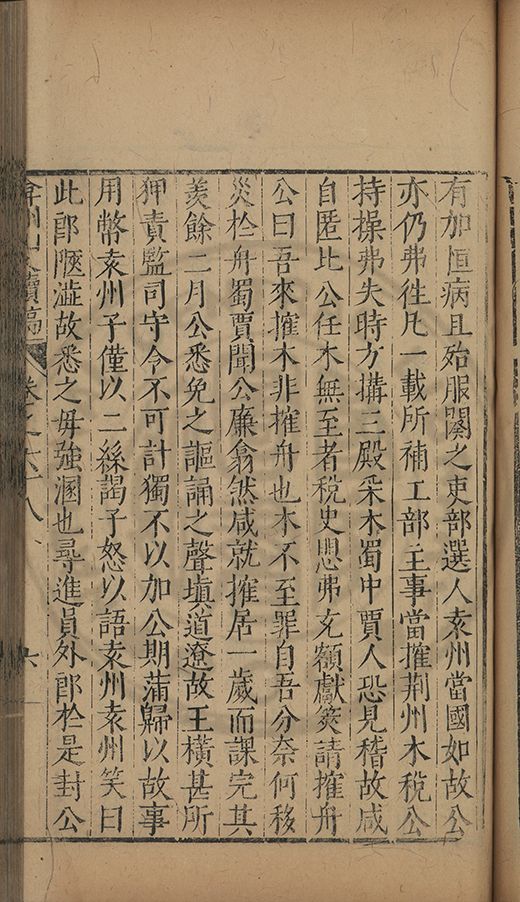 有加恒病且殆服闋之吏部選人袁州當國如故公
亦仍弗徃凡一載所補工部主事當搉荆州木稅公
持操弗失時方搆三殿采木蜀中賈人恐見稽故咸
自匿比公任木無至者稅史思弗充額獻筴請搉舟
公曰吾來搉木非搉舟也木不至罪自吾分奈何移
災於舟蜀賈聞公廉翕然咸就搉居一歲而課完其
羨餘二月公悉免之謳誦之聲塡道遼故王橫甚所
狎責監司守令不可計獨不以加公期滿歸以故事
用幣袁州子僅以二絲謁子怒以語袁州袁州笑曰
此郎陿澁故悉之毋強溷也尋進員外郎於是封公
續稿 卷之六十八 六